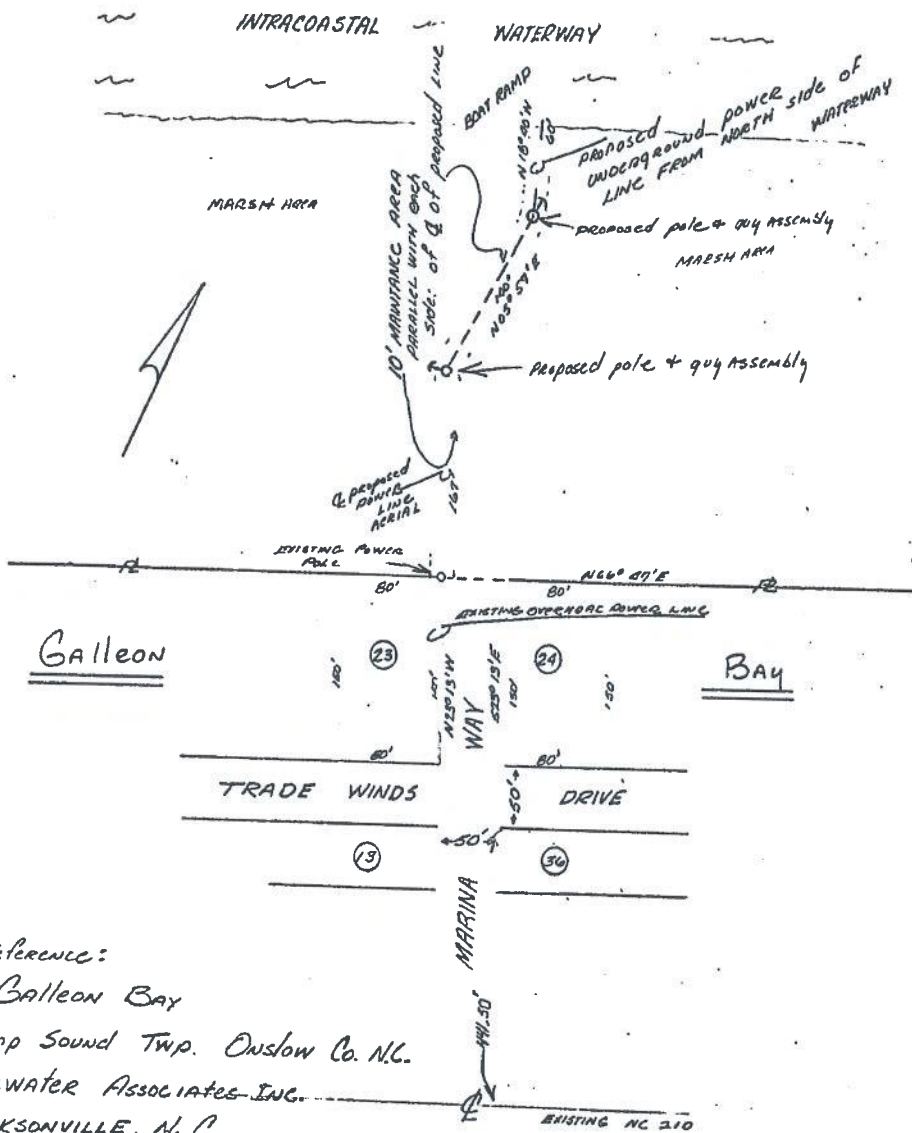 INTRACOASTAL WATERWAY
BOAT RAMP
10' MAINTANCE AREA
PARALLEL WITH EACH
SIDE: OF ℄ OF PROPOSED LINE
N 18° 20' W
60'
PROPOSED
UNDERGROUND POWER
LINE FROM NORTH SIDE OF
WATERWAY
MARSH AREA
PROPOSED pole & guy ASSEMBLY
MARSH AREA
140'
N05° 57' E
PROPOSED pole & guy ASSEMBLY
℄ PROPOSED
POWER
LINE
AERIAL
EXISTING POWER
POLE
80'
80'
N66° 47' E
EXISTING OVERHEAD POWER LINE
GAlleON
BAY
23
24
150'
N23° 13' W
WAY
S23° 13' E
150'
150'
80'
80'
TRADE WINDS DRIVE
50'
50'
13
36
MARINA
℄
EXISTING NC 210
GAlleON BAY
SOUND TWP. ONSLOW CO. N.C.
WATER ASSOCIATES INC.
N.C.